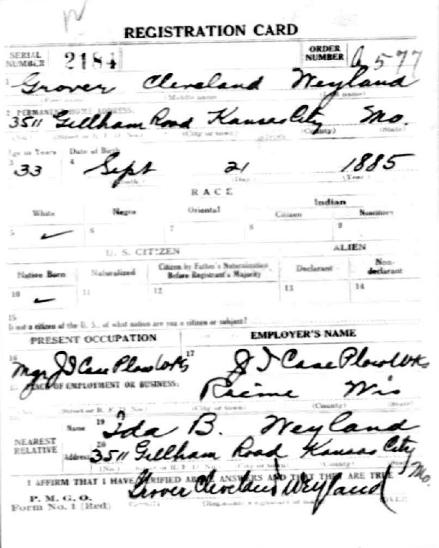 REGISTRATION CARD
SERIAL NUMBER 2184 ORDER NUMBER A577
1 Grover Cleveland Weyland
(Middle name) (Last name)
2 PERMANENT HOME ADDRESS:
3511 Gillham Road Kansas City Mo.
(City or town) (County) (State)
Age in Years Date of Birth
3 33 4 Sept 21 1885
(Month) (Day) (Year)
RACE
White Negro Oriental Indian
Citizen Noncitizen
5 ✓ 6 7 8 9
U. S. CITIZEN ALIEN
Native Born Naturalized Citizen by Father's Naturalization Before Registrant's Majority Declarant Non-declarant
10 ✓ 11 12 13 14
15
If not a citizen of the U. S., of what nation are you a citizen or subject?
PRESENT OCCUPATION EMPLOYER'S NAME
16 Mgr J I Case Plow Wks 17 J I Case Plow Wks
18 PLACE OF EMPLOYMENT OR BUSINESS:
Racine Wis
(Street or R. F. D. No.) (City or town) (County) (State)
NEAREST RELATIVE
Name 19 Ida B. Weyland
Address 20 3511 Gillham Road Kansas City Mo.
(No.) (City or town)
I AFFIRM THAT I HAVE VERIFIED ABOVE ANSWERS AND THAT THEY ARE TRUE
P. M. G. O.
Form No. 1 (Red) Grover Cleveland Weyland